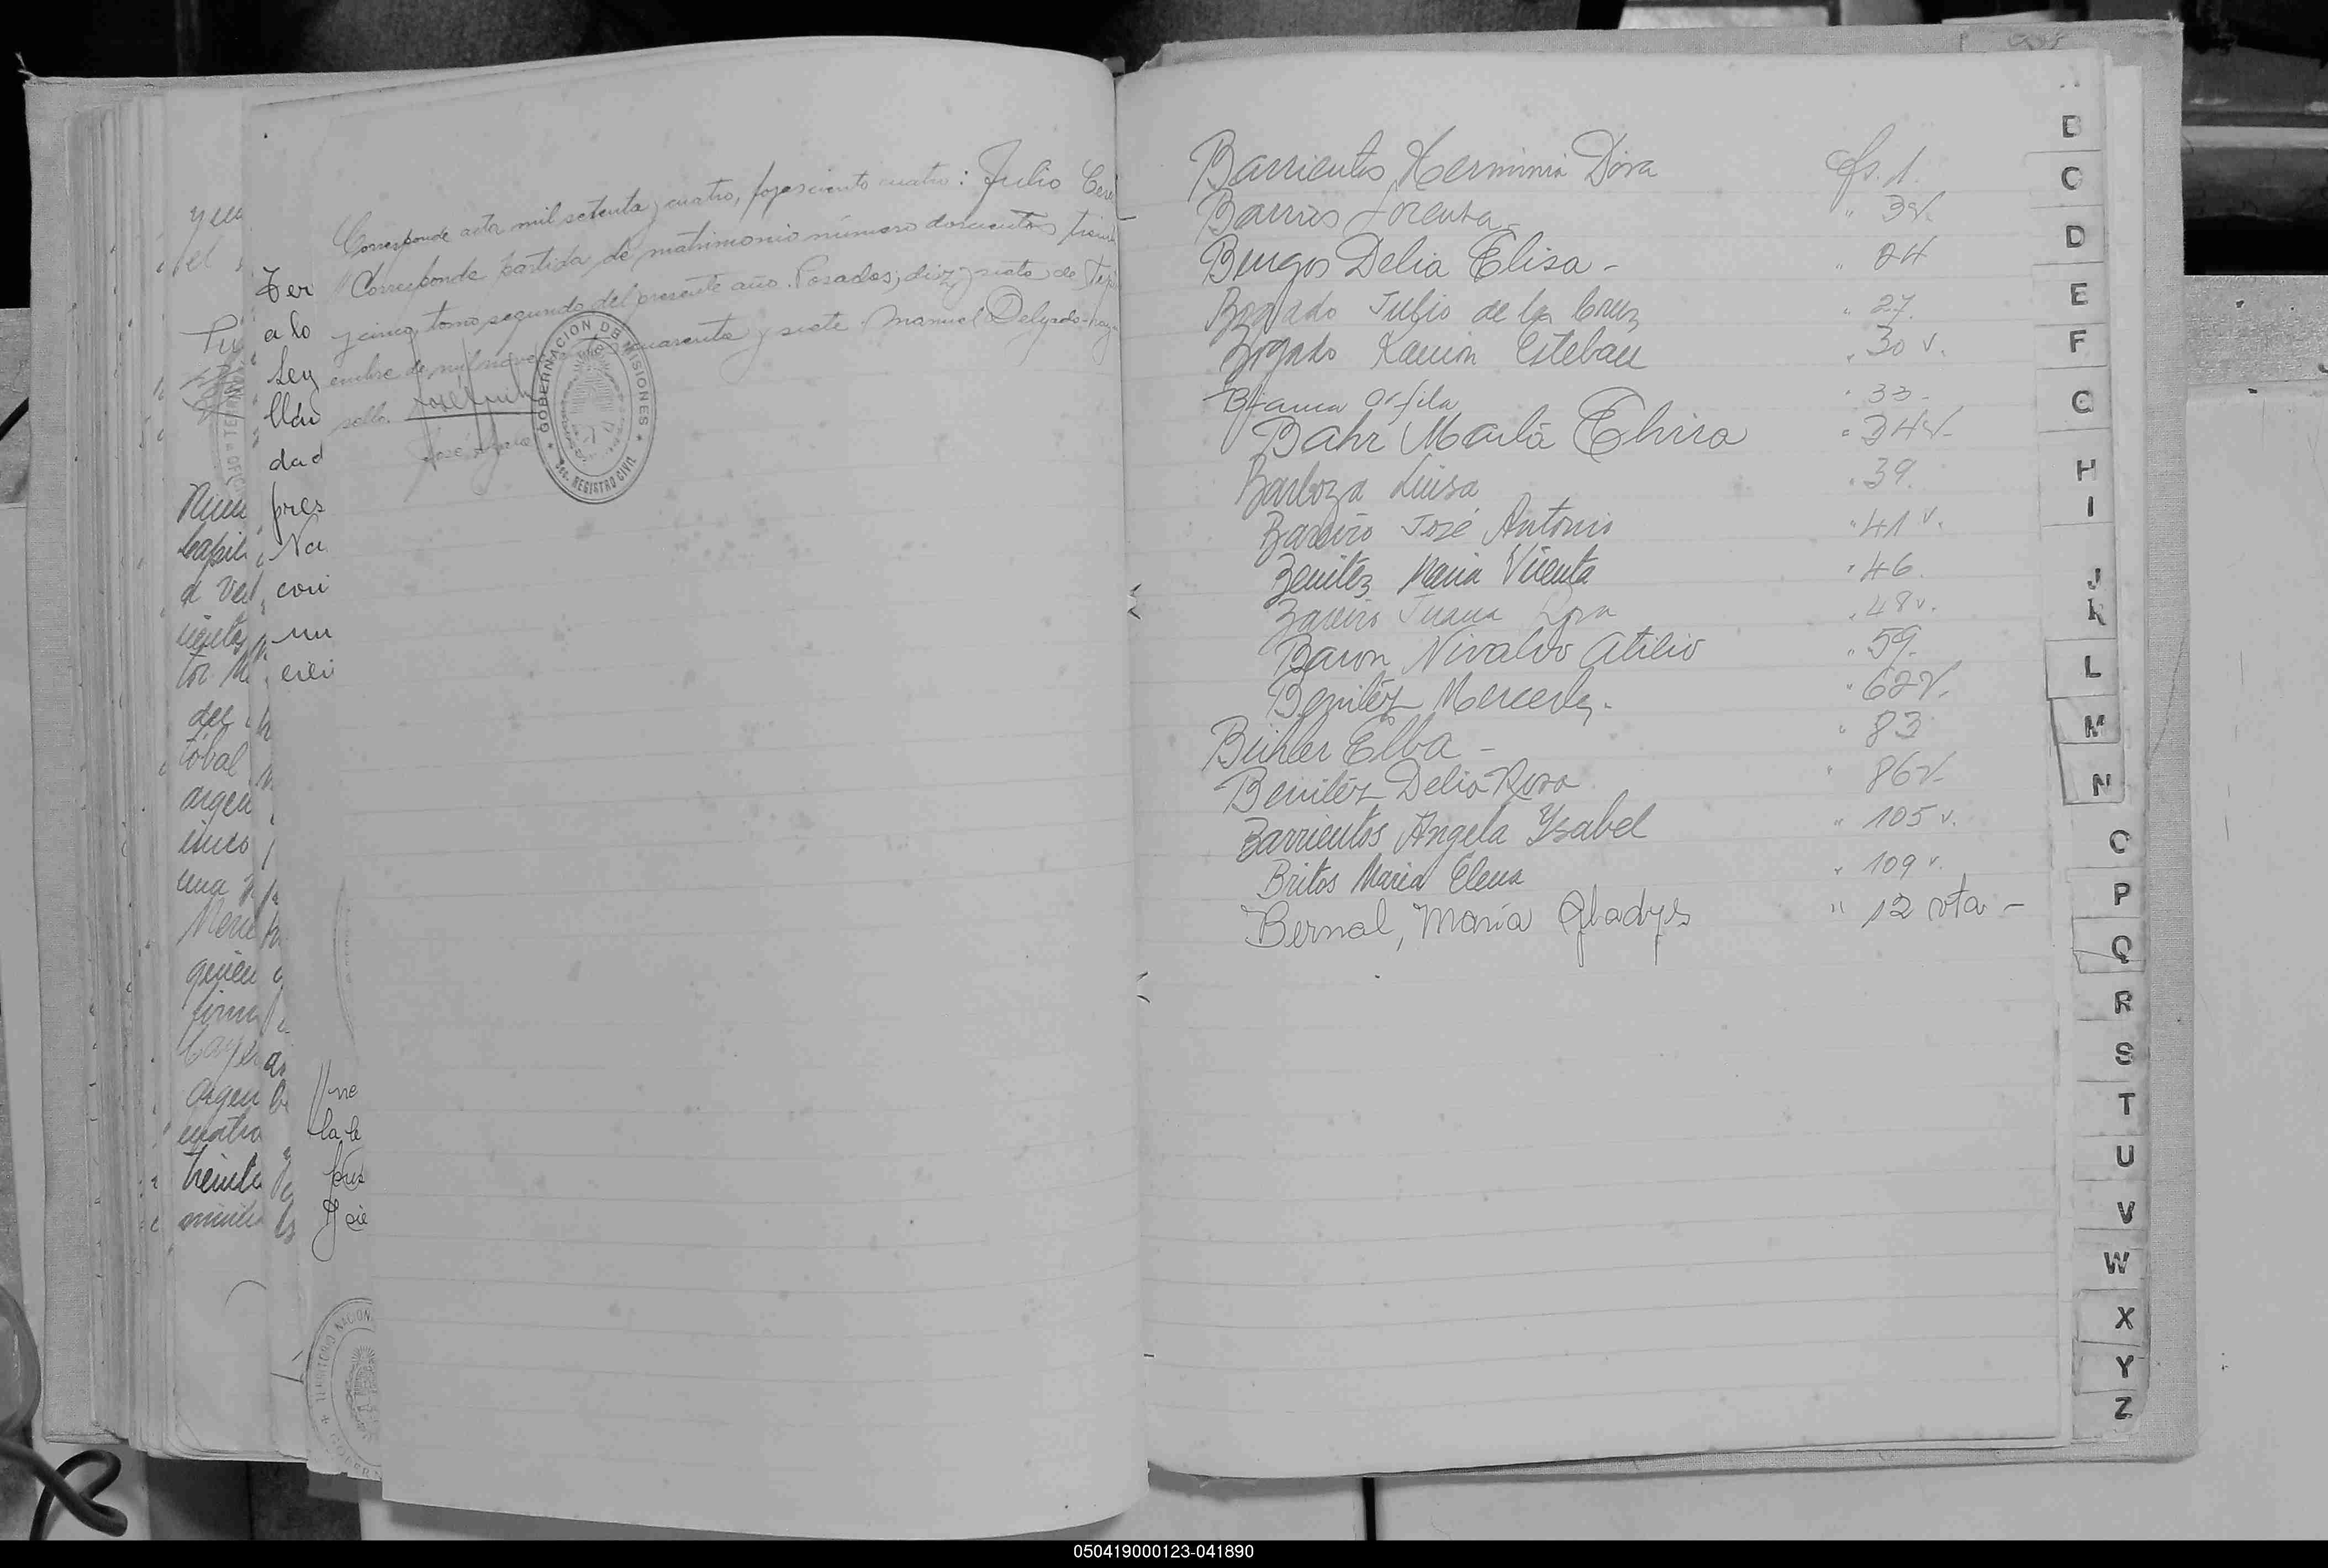 Corresponde acta mil setenta y cuatro, fojas ciento cuatro: Julio Cere
"Corresponde partida de matrimonio número doscientos treint
y cinco, tomo segundo del presente año. Posadas, diez y siete de Septi
embre de mil nove cuarenta y siete. Manuel Delgado - hay
sello.
GOBERNACION DE MISIONES
Sec. REGISTRO CIVIL
yua
el
Ter
a lo
Ley
dad
pres
Na
cori
nu
del
tobal
argen
una
quien
firma
argen
cuatro
treinta
la
TERRITORIO NACION
Barrientos Herminia Dora fs. 1.
Barrios Lorenza " 3v.
Burgos Delia Elisa - " 24
Bogado Julio de la Cruz " 27.
Bogado Ramón Esteban " 30 v.
Orfila " 33-
Bahr Marta Elvira " 34v-
Barboza Luisa " 39.
Bareiro José Antonio " 41 v.
Benitez Maria Vicenta " 46.
Bareiro Juana Rosa " 48v.
Baron Nivaldo Atilio " 59.
Benitez Mercedes. " 62v.
Buhler Elba - " 83
Benitez Delia Rosa " 86v-
Barrientos Angela Ysabel " 105 v.
Britos Maria Elena " 109 v.
Bernal, María Gladys " 12 vta -
B
C
D
E
F
G
H
I
J
K
L
M
N
O
P
Q
R
S
T
U
V
W
X
Y
Z
050419000123-041890